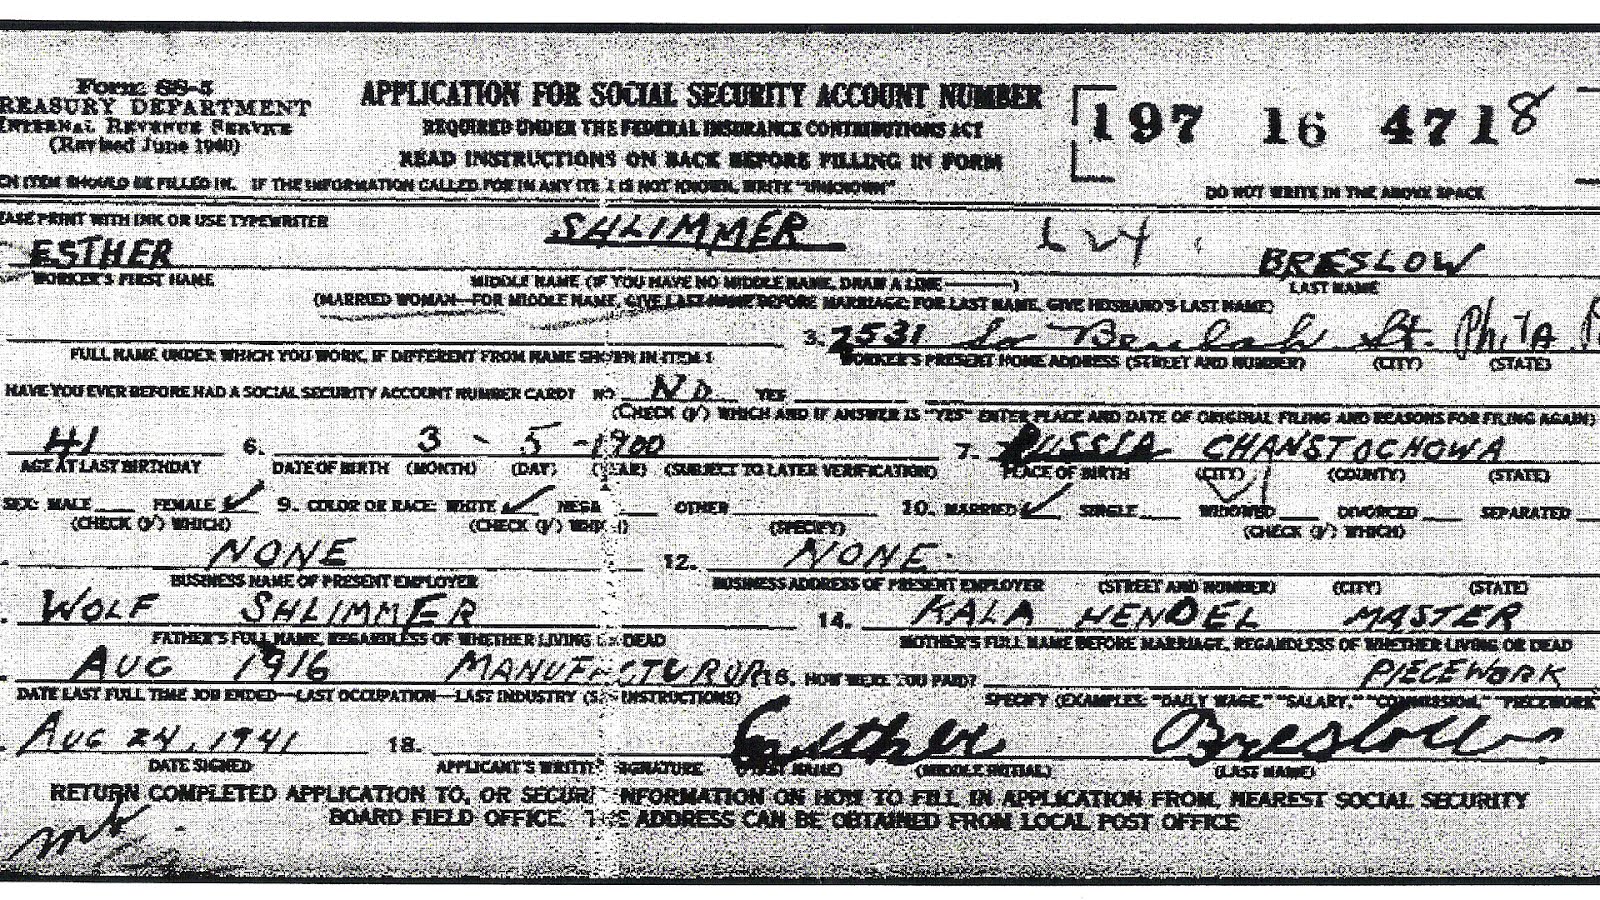 Form SS-5
REASURY DEPARTMENT
INTERNAL REVENUE SERVICE
(Revised June 1940)
APPLICATION FOR SOCIAL SECURITY ACCOUNT NUMBER
REQUIRED UNDER THE FEDERAL INSURANCE CONTRIBUTIONS ACT
READ INSTRUCTIONS ON BACK BEFORE FILLING IN FORM
197 16 4718
DO NOT WRITE IN THE ABOVE SPACE
CH ITEM SHOULD BE FILLED IN. IF THE INFORMATION CALLED FOR IN ANY ITE IS NOT KNOWN, WRITE "UNKNOWN"
EASE PRINT WITH INK OR USE TYPEWRITER
ESTHER SHLIMMER BRESLOW
WORKER'S FIRST NAME MIDDLE NAME (IF YOU HAVE NO MIDDLE NAME, DRAW A LINE ———) LAST NAME
(MARRIED WOMAN—FOR MIDDLE NAME, GIVE LAST NAME BEFORE MARRIAGE; FOR LAST NAME, GIVE HUSBAND'S LAST NAME)
3. 2531 So Beulah St. Phila. P
FULL NAME UNDER WHICH YOU WORK, IF DIFFERENT FROM NAME SHOWN IN ITEM 1 WORKER'S PRESENT HOME ADDRESS (STREET AND NUMBER) (CITY) (STATE)
HAVE YOU EVER BEFORE HAD A SOCIAL SECURITY ACCOUNT NUMBER CARD? NO No YES
(CHECK (√) WHICH AND IF ANSWER IS "YES" ENTER PLACE AND DATE OF ORIGINAL FILING AND REASONS FOR FILING AGAIN)
41 6. 3 - 5 - 1900 7. RUSSIA CHANSTOCHOWA
AGE AT LAST BIRTHDAY DATE OF BIRTH (MONTH) (DAY) (YEAR) (SUBJECT TO LATER VERIFICATION) PLACE OF BIRTH (CITY) (COUNTY) (STATE)
SEX: MALE FEMALE ✓ 9. COLOR OR RACE: WHITE ✓ NEG OTHER 10. MARRIED ✓ SINGLE WIDOWED DIVORCED SEPARATED
(CHECK (√) WHICH) (CHECK (√) WHICH) (SPECIFY) (CHECK (√) WHICH)
NONE 12. NONE
BUSINESS NAME OF PRESENT EMPLOYER BUSINESS ADDRESS OF PRESENT EMPLOYER (STREET AND NUMBER) (CITY) (STATE)
WOLF SHLIMMER 14. KALA HENDEL MASTER
FATHER'S FULL NAME, REGARDLESS OF WHETHER LIVING OR DEAD MOTHER'S FULL NAME BEFORE MARRIAGE, REGARDLESS OF WHETHER LIVING OR DEAD
AUG 1916 MANUFACTUROR 16. HOW WERE YOU PAID? PIECEWORK
DATE LAST FULL TIME JOB ENDED—LAST OCCUPATION—LAST INDUSTRY (S INSTRUCTIONS) SPECIFY (EXAMPLES: "DAILY WAGE," "SALARY," "COMMISSION," "PIECEWORK"
AUG 24, 1941 18. Esther Breslow
DATE SIGNED APPLICANT'S WRITTE SIGNATURE (FIRST NAME) (MIDDLE INITIAL) (LAST NAME)
RETURN COMPLETED APPLICATION TO, OR SECURE INFORMATION ON HOW TO FILL IN APPLICATION FROM, NEAREST SOCIAL SECURITY
BOARD FIELD OFFICE. THE ADDRESS CAN BE OBTAINED FROM LOCAL POST OFFICE